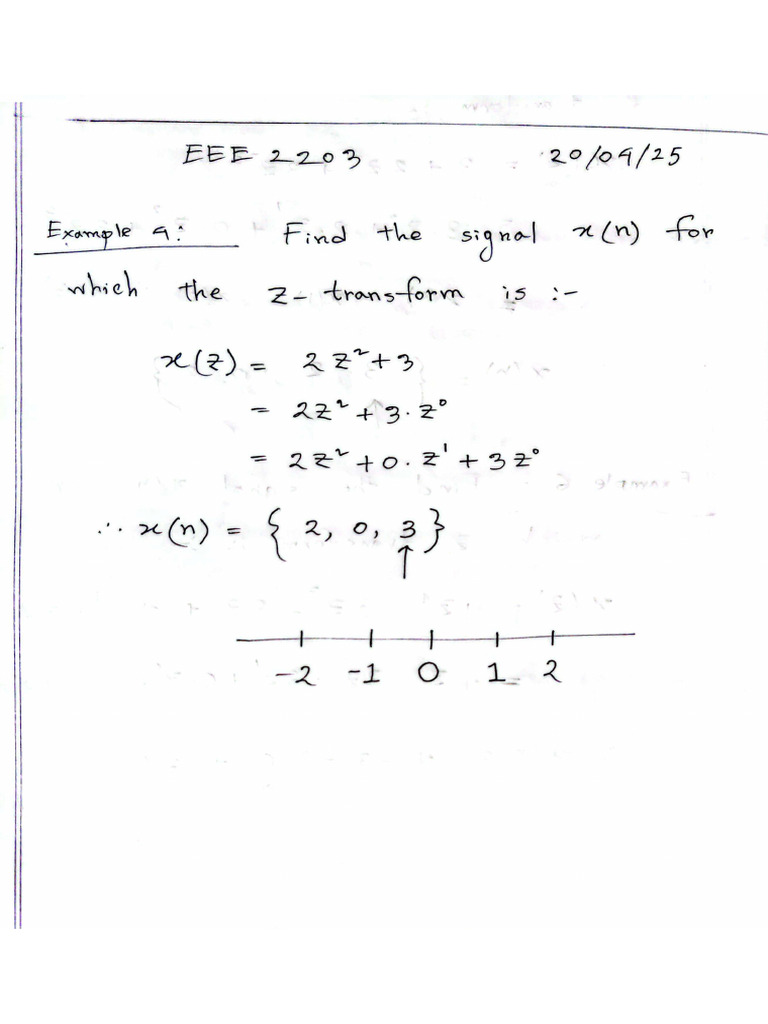 EEE 2203 20/04/25
Example 4: Find the signal x(n) for
which the Z-transform is :-
x(z) = 2z²+3
= 2z² + 3·z⁰
= 2z² + 0·z¹ + 3z⁰
∴ x(n) = { 2, 0, 3 }
↑
-2 -1 0 1 2